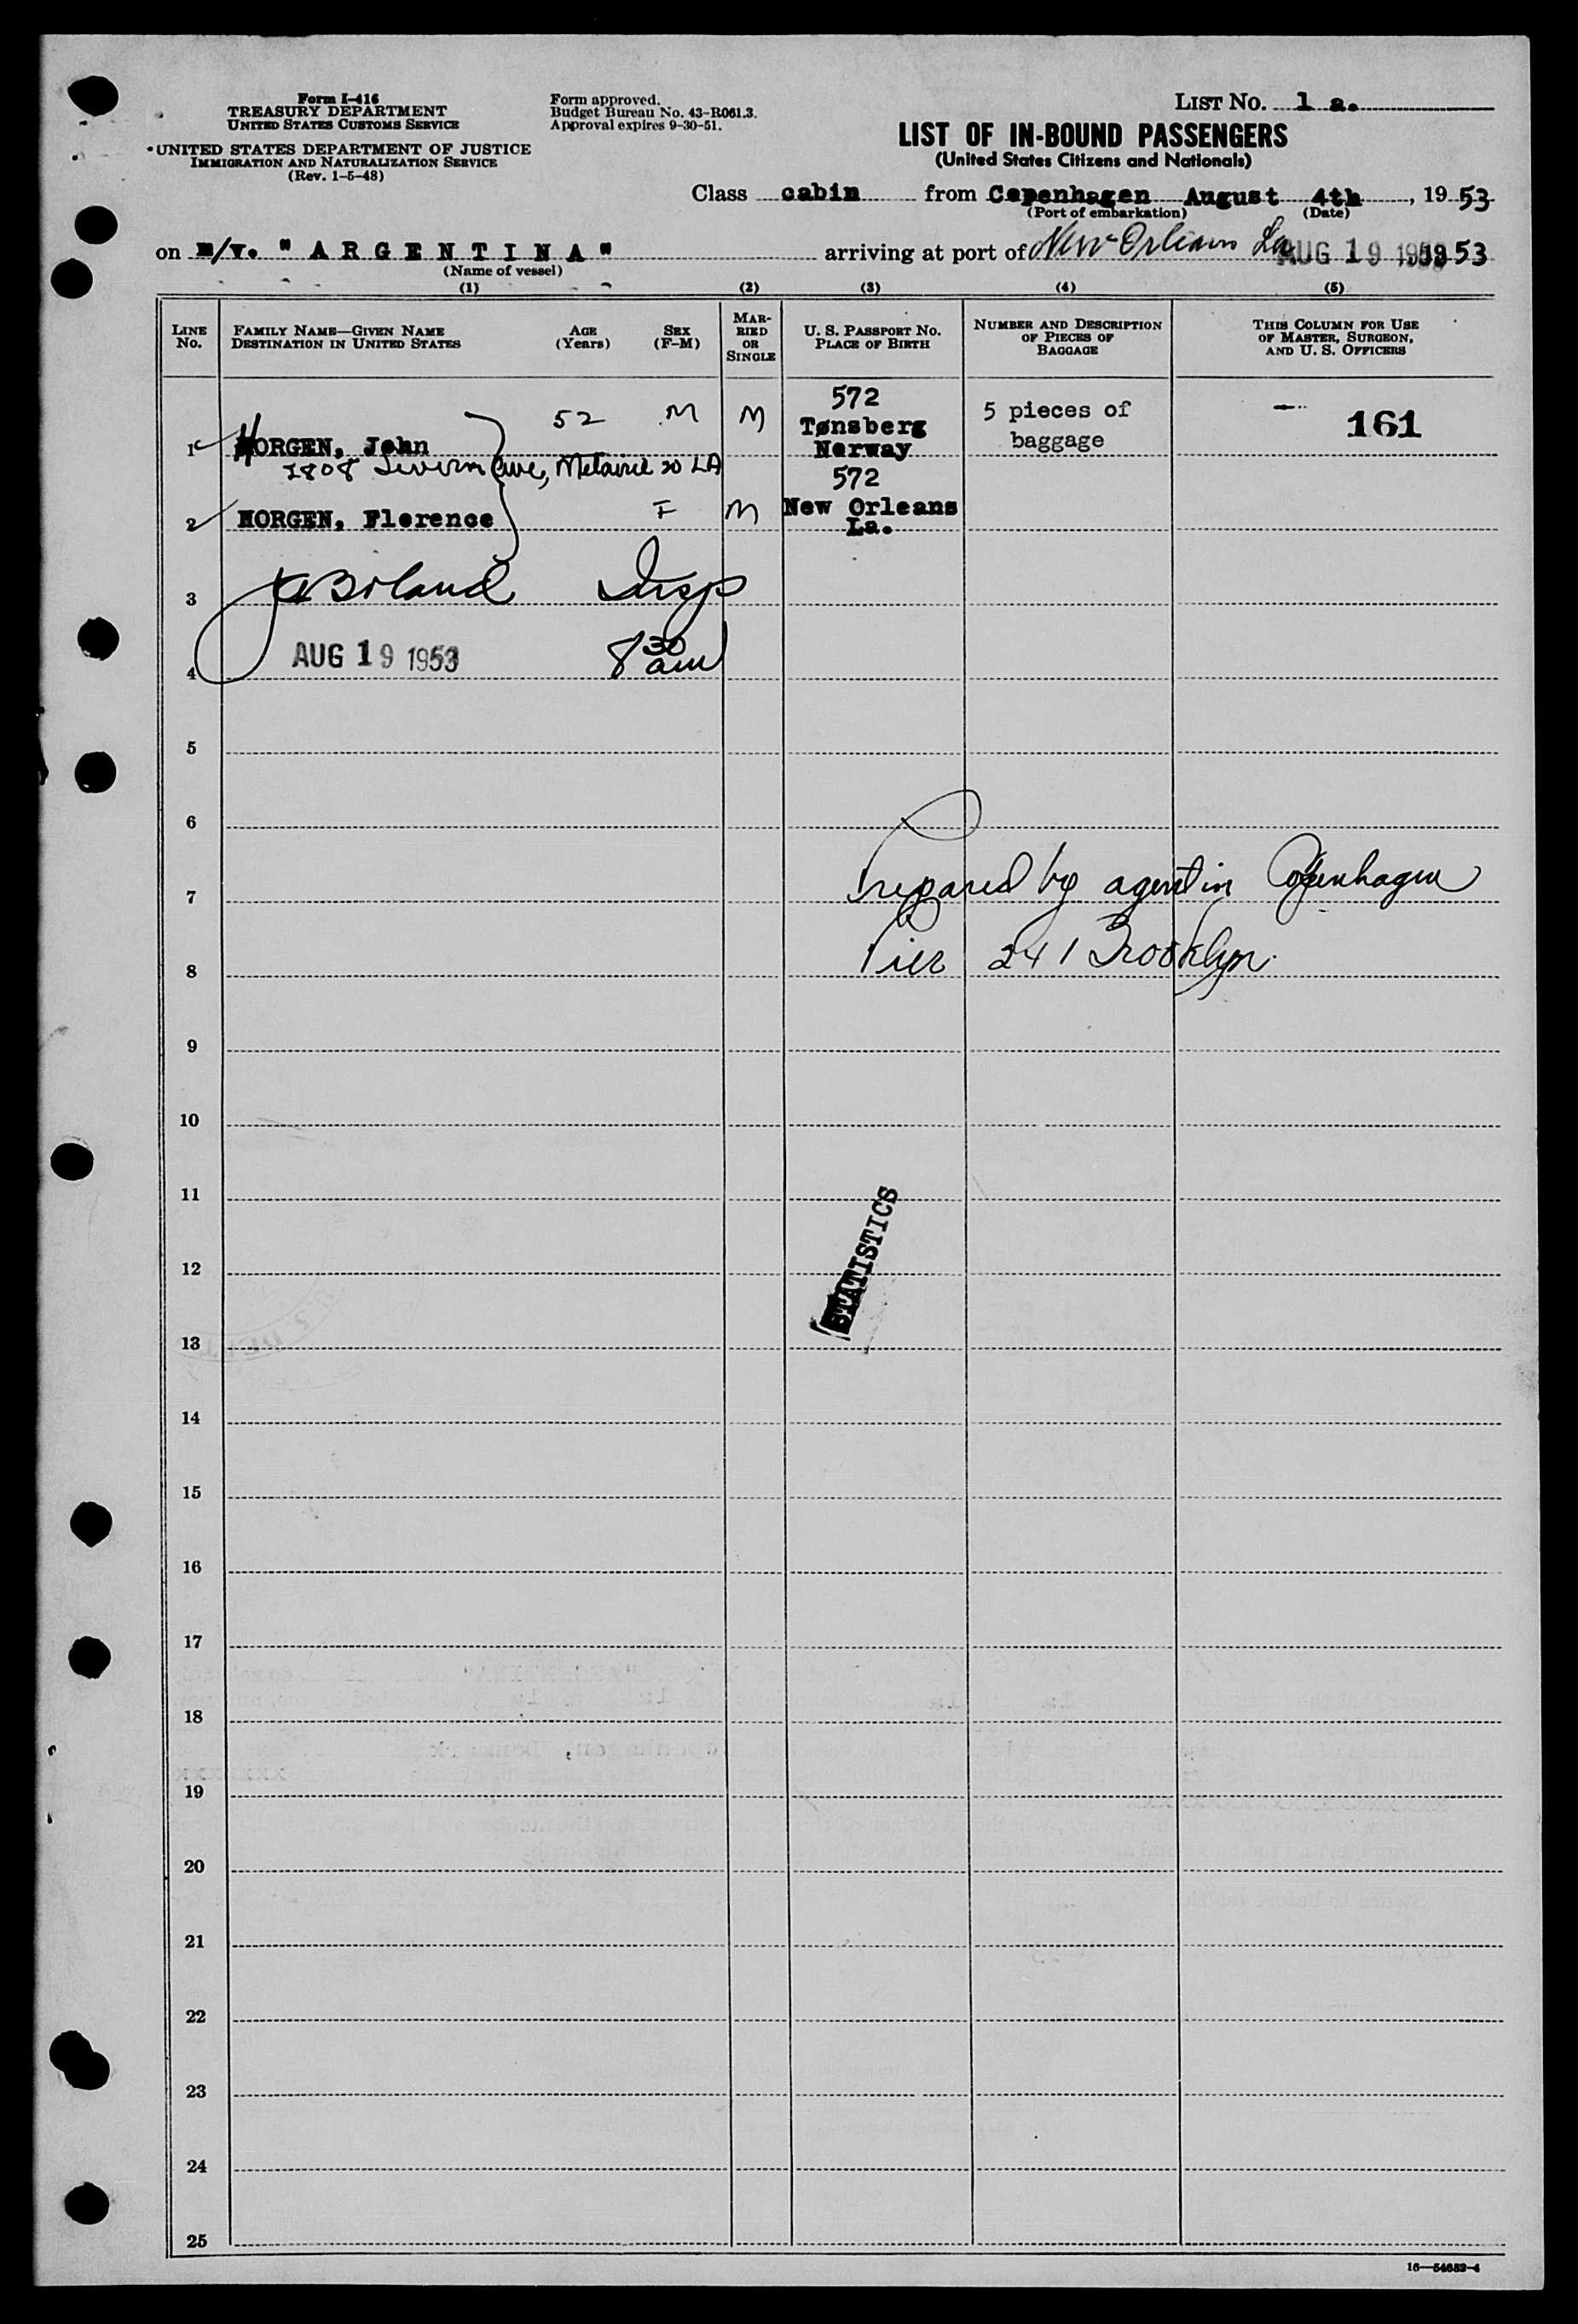 Form I-416
TREASURY DEPARTMENT
UNITED STATES CUSTOMS SERVICE
UNITED STATES DEPARTMENT OF JUSTICE
IMMIGRATION AND NATURALIZATION SERVICE
(Rev. 1-5-48)
Form approved.
Budget Bureau No. 43-R061.3.
Approval expires 9-30-51.
LIST No. 1 a.
LIST OF IN-BOUND PASSENGERS
(United States Citizens and Nationals)
Class cabin from Copenhagen August 4th, 1953
(Port of embarkation) (Date)
on m/v. "ARGENTINA" arriving at port of New Orleans La AUG 19 1953 1953
(Name of vessel)
(1) (2) (3) (4) (5)
LINE No. FAMILY NAME—GIVEN NAME DESTINATION IN UNITED STATES AGE (Years) SEX (F-M) MARRIED OR SINGLE U. S. PASSPORT No. PLACE OF BIRTH NUMBER AND DESCRIPTION OF PIECES OF BAGGAGE THIS COLUMN FOR USE OF MASTER, SURGEON, AND U. S. OFFICERS
1 HORGEN, John 52 M M 572 Tønsberg Norway 5 pieces of baggage 161
Ave, Metairie 20 LA
2 HORGEN, Florence F M 572 New Orleans La.
3 Boland Insp
4 AUG 19 1953 8 30 am
5
6
7 Prepared by agent in Copenhagen
8 Pier 241 Brooklyn.
9
10
11
12 STATISTICS
13
14
15
16
17
18
19
20
21
22
23
24
25
16—54652-4